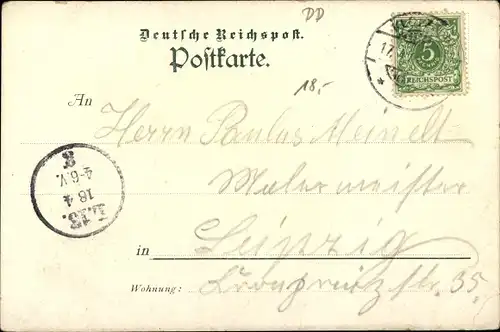 DD
Deutsche Reichspost.
Postkarte.
18,-
5
REICHSPOST
17.
An
Herrn Paulus Meinelt
Malermeister
in Leipzig
Wohnung: Kronprinzstr. 35.
L.13.
18 4
4-6.V.
3